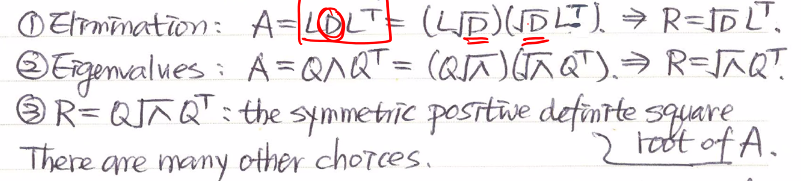 ① Elimination: A=LDLᵀ= (L√D)(√D Lᵀ). ⇒ R=√D Lᵀ.
② Eigenvalues: A=QΛQᵀ= (Q√Λ)(√Λ Qᵀ). ⇒ R=√Λ Qᵀ.
③ R= Q√Λ Qᵀ: the symmetric positive definite square
root of A.
There are many other choices.